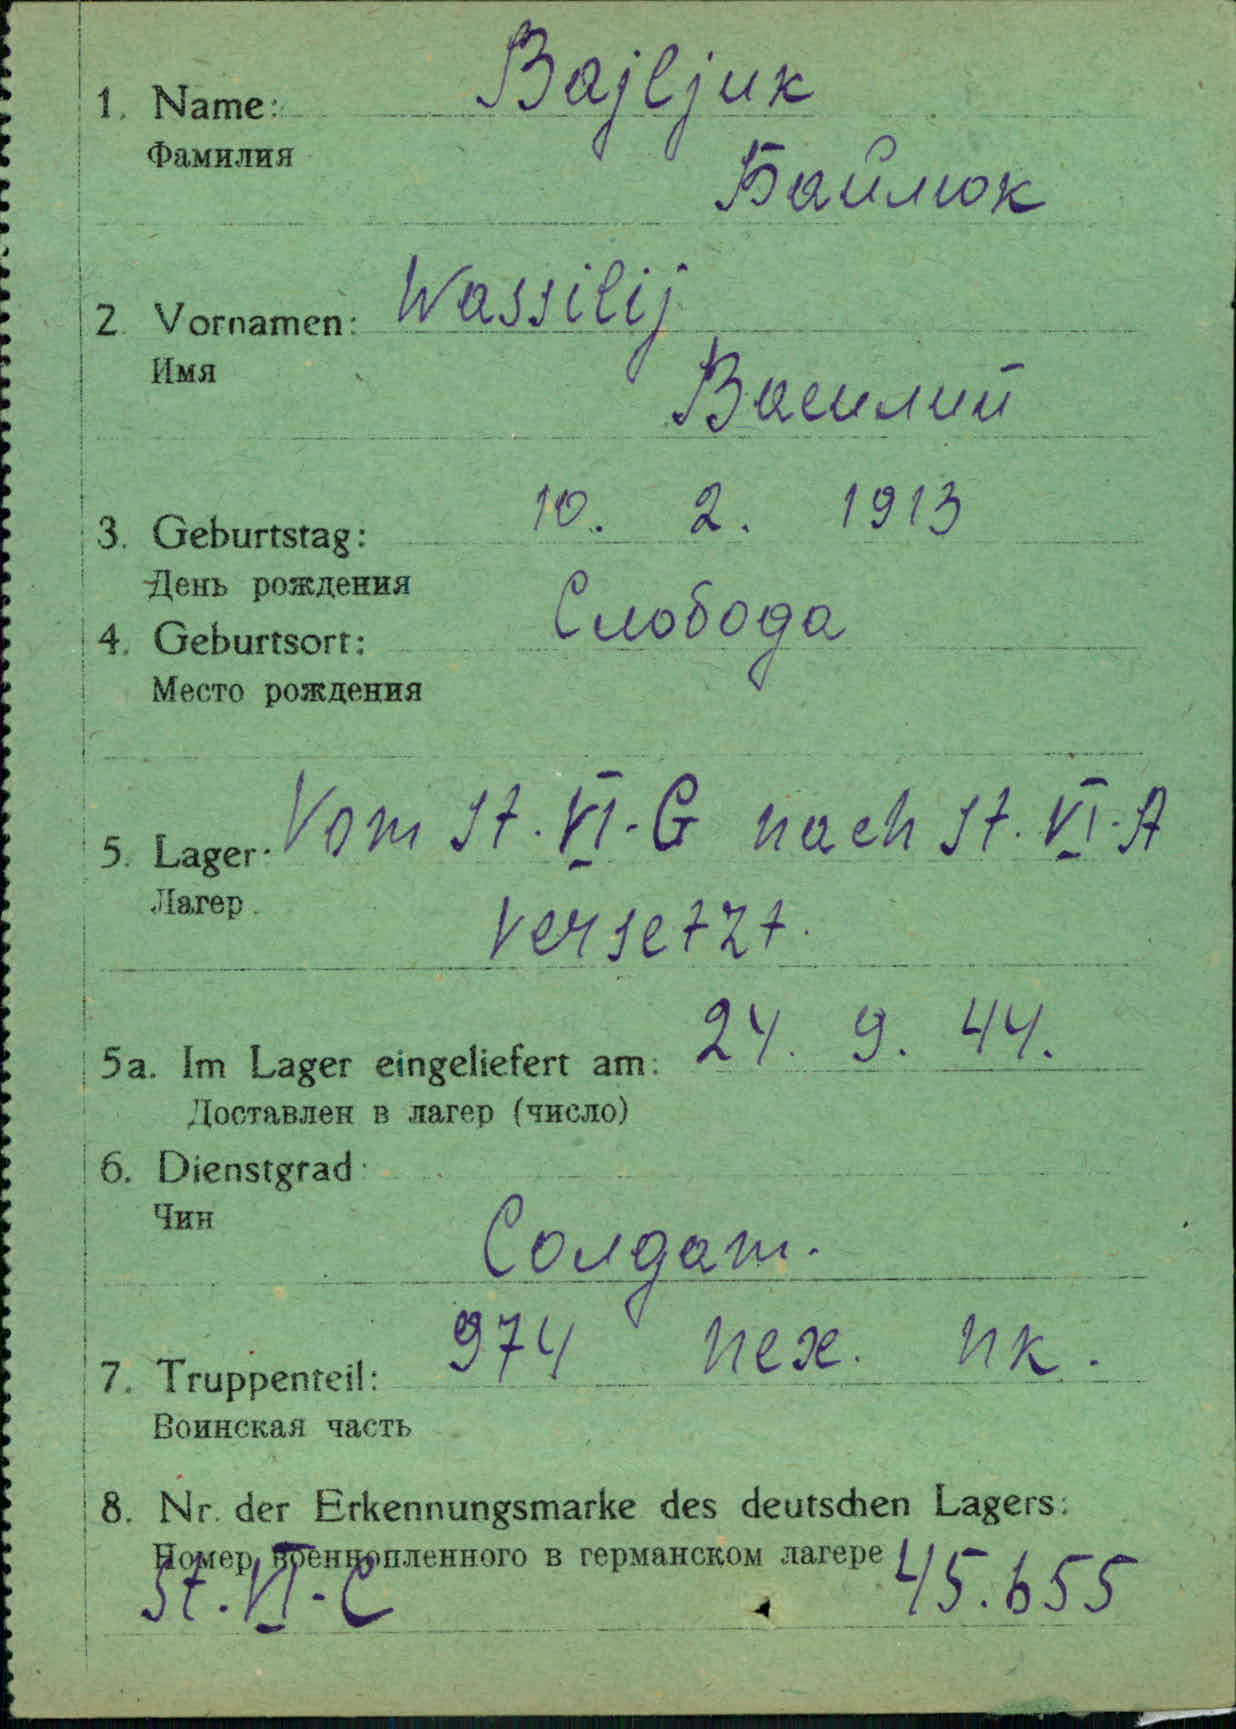 1. Name: Bajljuk
Фамилия
Байлюк
2. Vornamen: Wassilij
Имя
Василий
3. Geburtstag: 10. 2. 1913
День рождения
4. Geburtsort: Слобода
Место рождения
5. Lager: Vom St. VI-G nach St. VI-A
Лагер
versetzt.
5a. Im Lager eingeliefert am: 24. 9. 44.
Доставлен в лагер (число)
6. Dienstgrad:
Чин
Солдат.
7. Truppenteil: 974 пех. пк.
Воинская часть
8. Nr. der Erkennungsmarke des deutschen Lagers:
Номер военнопленного в германском лагере
St. VI-C 45.655